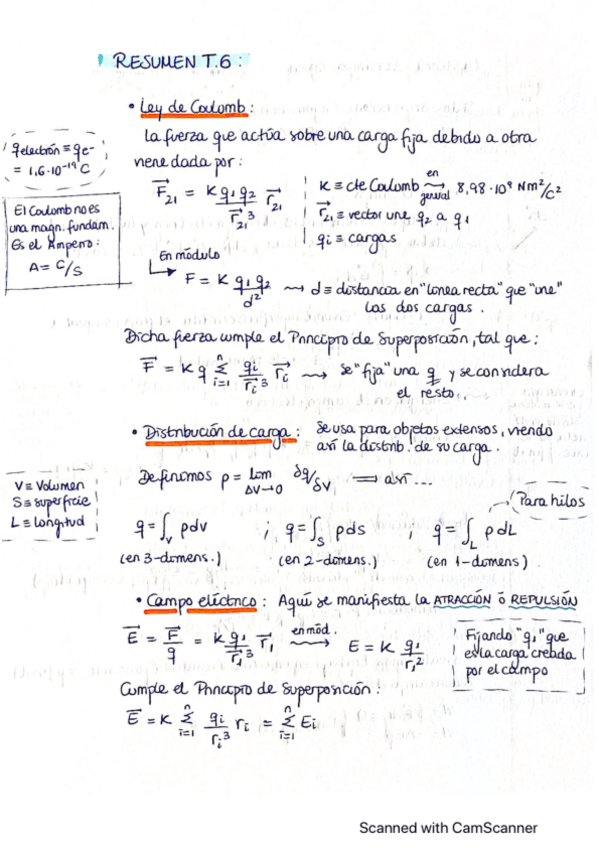 RESUMEN T.6:
• Ley de Coulomb:
La fuerza que actúa sobre una carga fija debido a otra
viene dada por:
q electrón ≡ qe-
= 1,6·10⁻¹⁹ C
El Coulomb no es
una magn. fundam.
Es el Amperio:
A = C/s
F⃗₂₁ = K q₁q₂/r⃗₂₁³ r⃗₂₁
K ≡ cte Coulomb en general 8,98·10⁹ Nm²/C²
r⃗₂₁ ≡ vector une q₂ a q₁
qi ≡ cargas
En módulo
F = K q₁q₂/d² ⇝ d ≡ distancia en "línea recta" que "une"
las dos cargas.
Dicha fuerza cumple el Principio de Superposición, tal que:
F⃗ = K q Σⁿᵢ₌₁ qi/ri³ r⃗i ⇝ se "fija" una q y se considera
el resto.
• Distribución de carga: Se usa para objetos extensos, viendo
así la distrib. de su carga.
V ≡ Volumen
S ≡ superficie
L ≡ Longitud
Definimos ρ = lim ΔV→0 δq/δV ⟹ así ...
Para hilos
q = ∫V ρdv ; q = ∫S ρds ; q = ∫L ρdL
(en 3-domens.) (en 2-domens.) (en 1-domens)
• Campo eléctrico: Aquí se manifiesta la ATRACCIÓN ó REPULSIÓN
E⃗ = F⃗/q = K q₁/r₁³ r⃗₁ en mód. → E = K q₁/r₁²
Fijando "q₁" que
es la carga creada
por el campo
Cumple el Principio de Superposición:
E⃗ = K Σⁿᵢ₌₁ qi/ri³ ri = Σⁿᵢ₌₁ Ei
Scanned with CamScanner